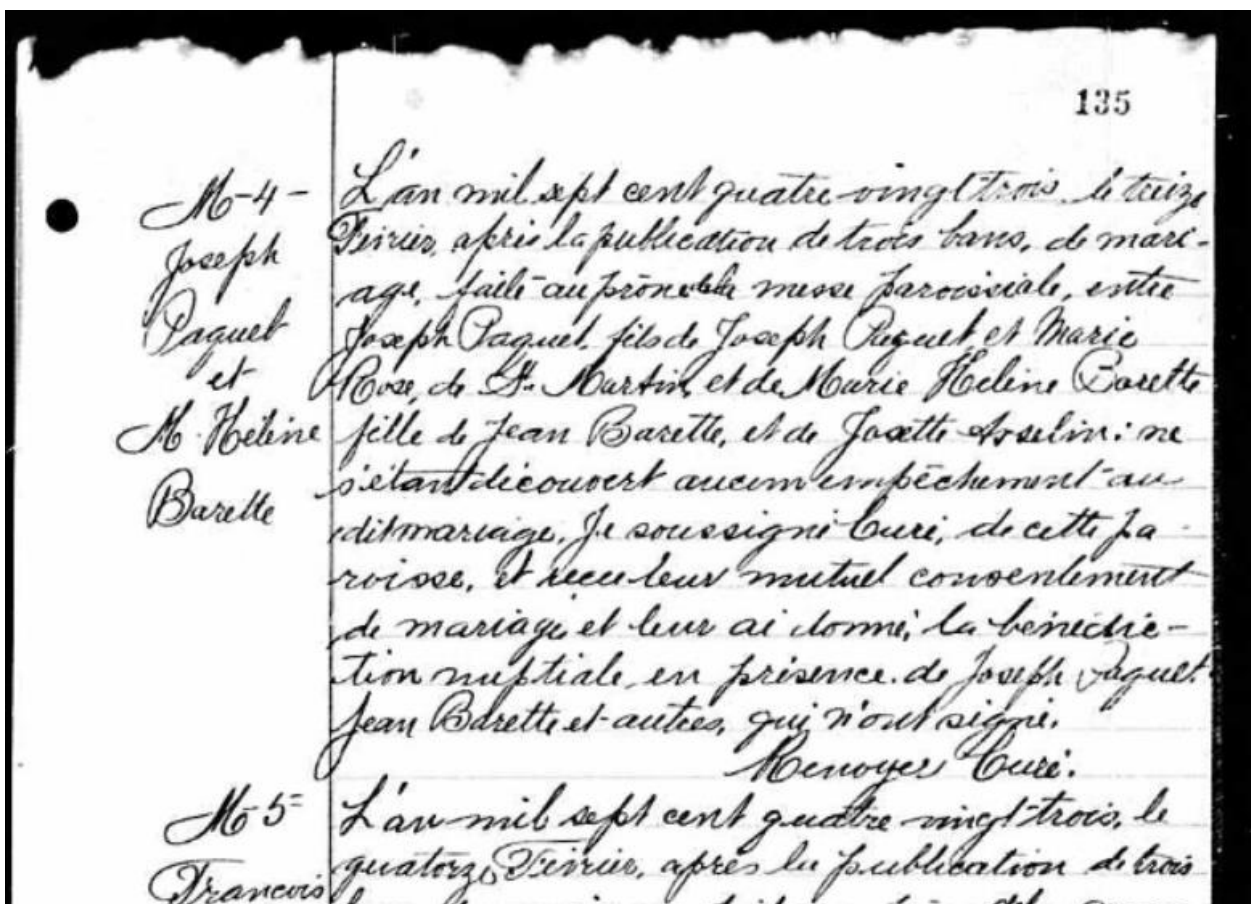 135
M-4-
Joseph
Paquet
et
M. Hélène
Barette
L'an mil sept cent quatre-vingt-trois, le treize
Février, après la publication de trois bans, de mari-
age, faite au prône de la messe paroissiale, entre
Joseph Paquet, fils de Joseph Paquet, et Marie
Rose, de St. Martin, et de Marie Hélène Barette
fille de Jean Barette, et de Josette Asselin: ne
s'étant découvert aucun empêchement au
dit mariage, Je soussigné Curé, de cette pa-
roisse, et reçu leur mutuel consentement
de mariage, et leur ai donné, la bénédic-
tion nuptiale, en présence de Joseph Paquet
Jean Barette et autres, qui n'ont signé.
Curé.
M-5=
Francois
L'an mil sept cent quatre-vingt-trois, le
quatorze Février, après la publication de trois